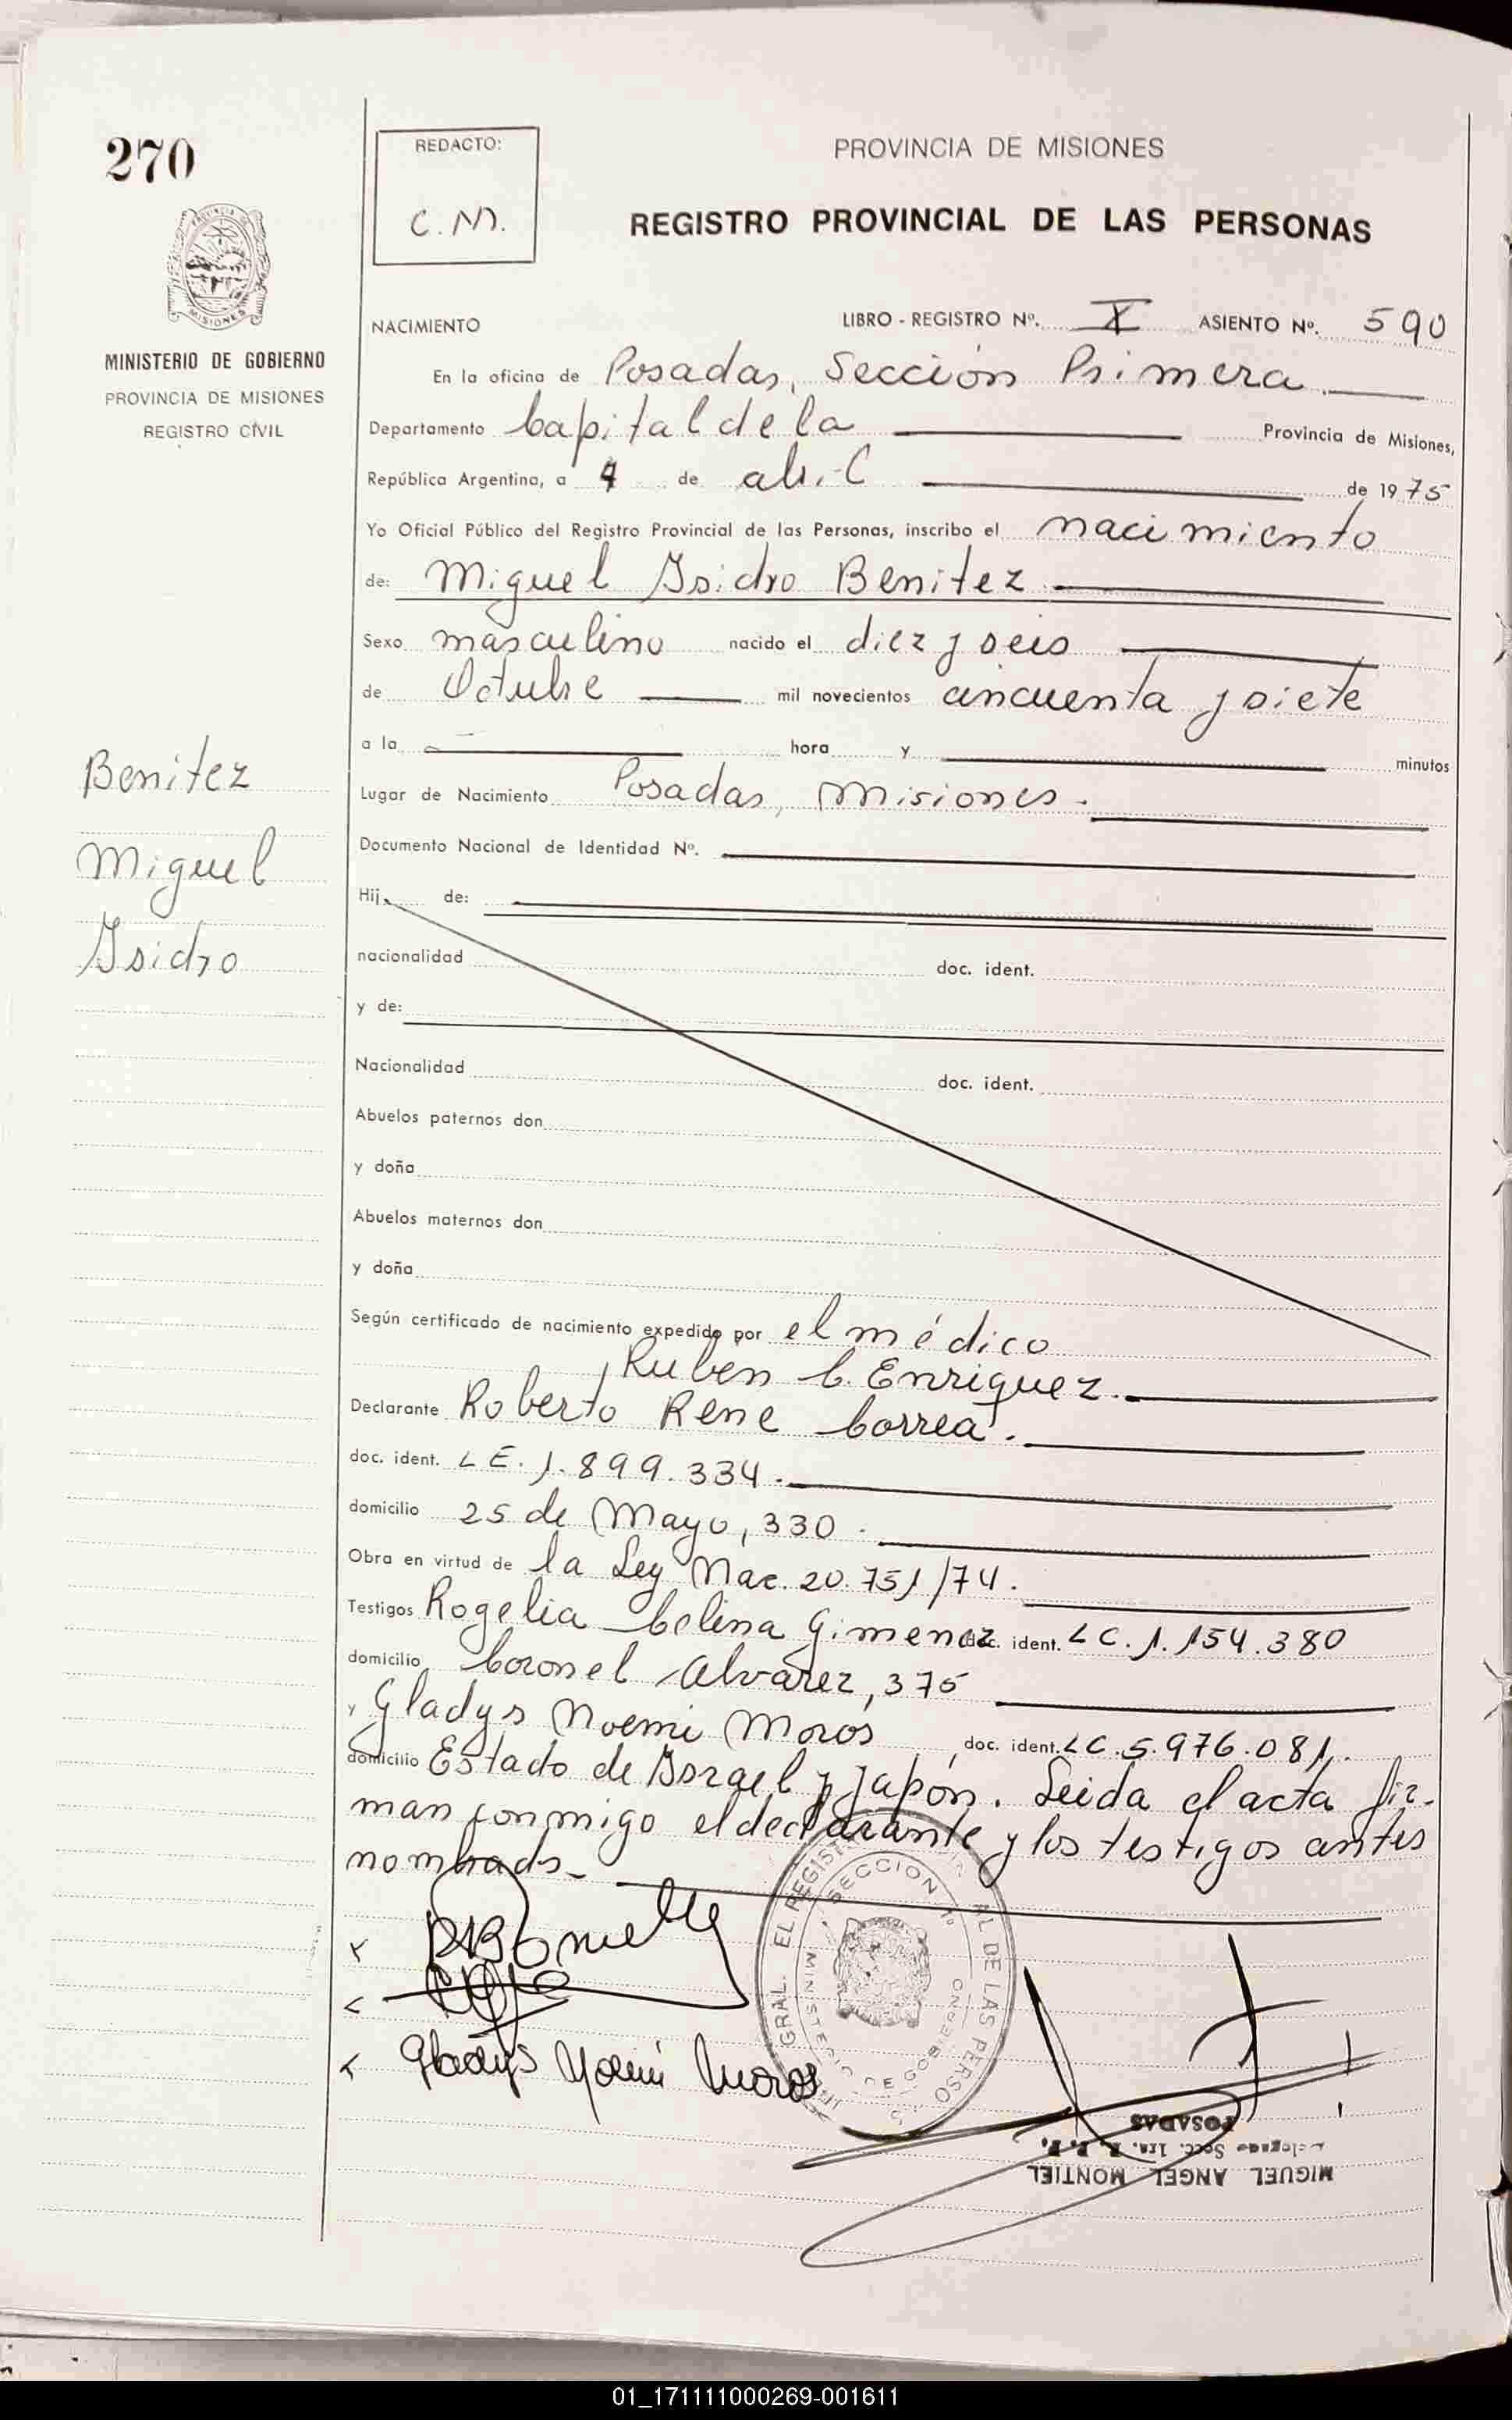 270
REDACTO:
C. M.
PROVINCIA DE MISIONES
REGISTRO PROVINCIAL DE LAS PERSONAS
MISIONES
MINISTERIO DE GOBIERNO
PROVINCIA DE MISIONES
REGISTRO CIVIL
NACIMIENTO LIBRO - REGISTRO Nº. I ASIENTO Nº. 590
En la oficina de Posadas, Sección Primera
Departamento Capital de la Provincia de Misiones,
República Argentina, a 4 de abril de 1975
Yo Oficial Público del Registro Provincial de las Personas, inscribo el nacimiento
de: Miguel Isidro Benitez
Sexo masculino nacido el diez y seis
de Octubre mil novecientos cincuenta y siete
a la hora y minutos
Lugar de Nacimiento Posadas, Misiones.
Documento Nacional de Identidad Nº.
Hij de:
nacionalidad doc. ident.
y de:
Nacionalidad doc. ident.
Abuelos paternos don
y doña
Abuelos maternos don
y doña
Según certificado de nacimiento expedido por el médico
Ruben C. Enriquez.
Declarante Roberto Rene Correa.
doc. ident. L E. 1.899.334.
domicilio 25 de Mayo, 330.
Obra en virtud de la Ley Nac. 20.751/74.
Testigos Rogelia Celina Gimenez doc. ident. L C. 1.154.380
domicilio Coronel Alvarez, 375
y Gladys Noemi Moros doc. ident. L C. 5.976.081.
domicilio Estado de Israel y Japón. Leida el acta fir-
man conmigo el declarante y los testigos antes
nombrads
Benitez
Miguel
Isidro
Gladys Noemi Moros
SECCION 1º
MINISTERIO DE GOBIERNO
POSADAS
Secc. 1ra.
MIGUEL ANGEL MONTIEL
01_171111000269-001611